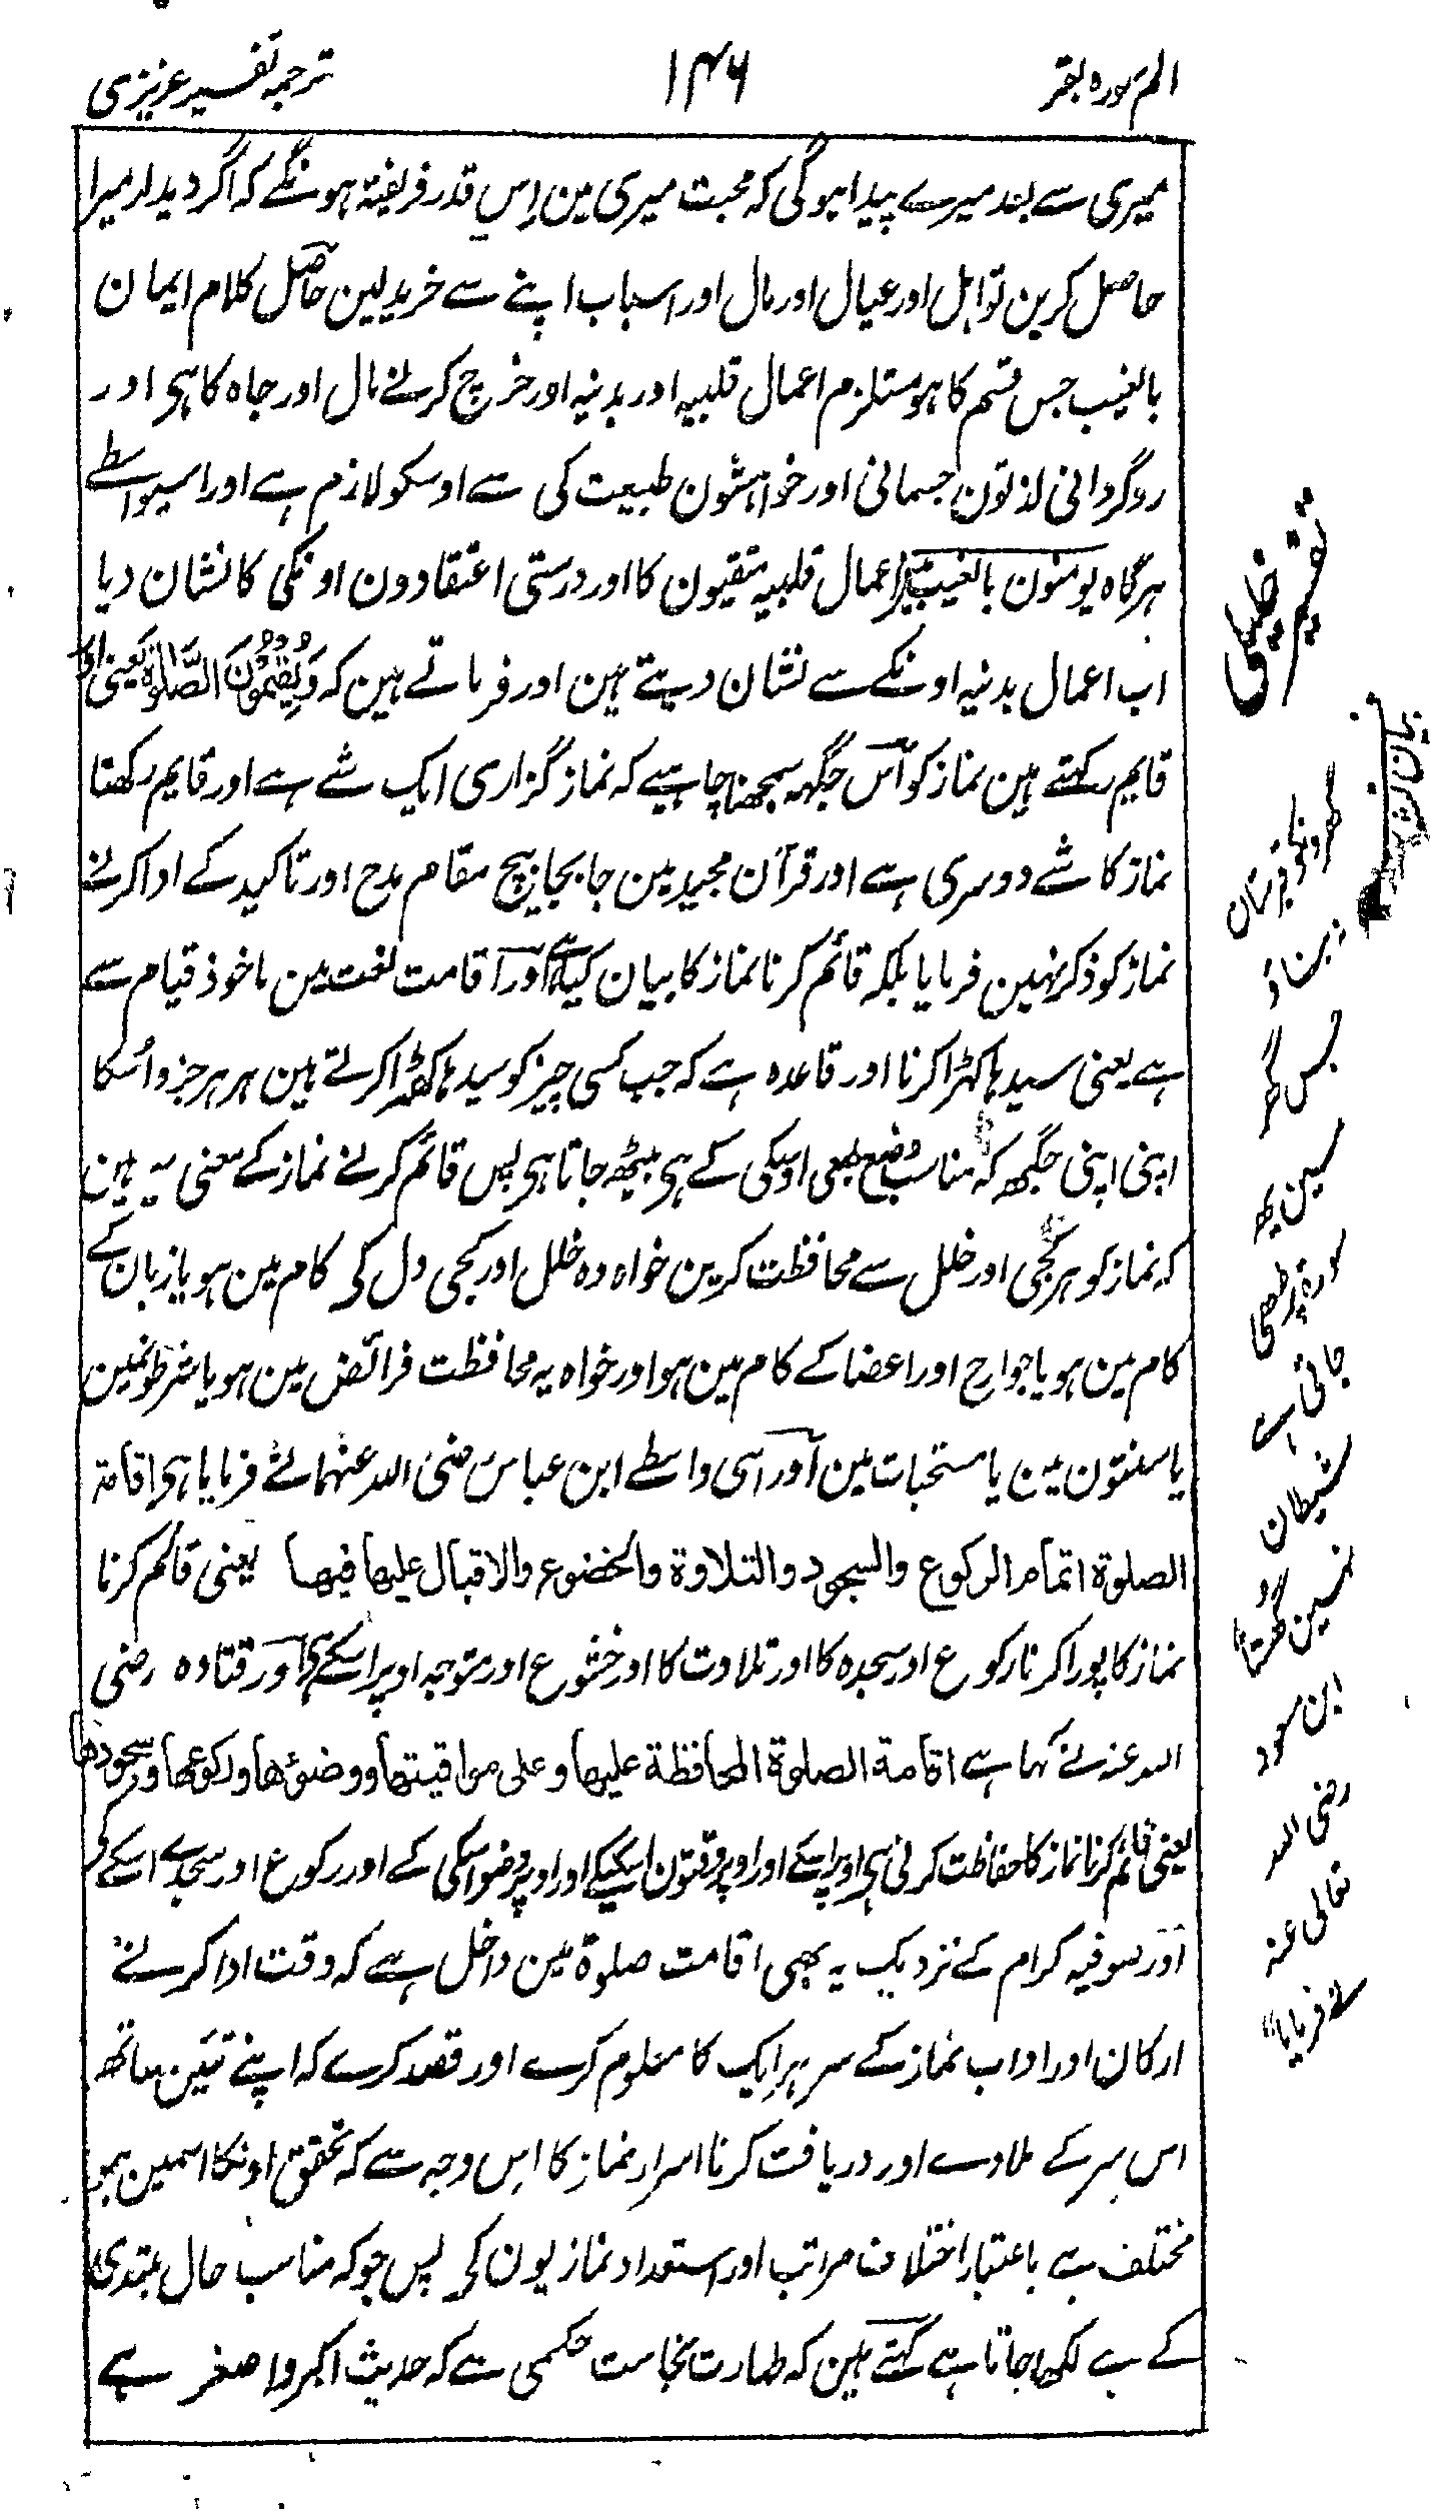 الم سوره بقر
۱۴۶
ترجمہ تفسیر عزیزی
میری سے بعد میرے پیدا ہوگی کہ محبت میری مین اِس قدر فریفتہ ہونگے کہ اگر دیدار میرا
حاصل کرین تو اہل اور عیال اور مال اور اسباب اپنے سے خرید لین حاصل کلام ایمان
بالغیب جس قسم کا ہو مستلزم اعمال قلبیہ اور بدنیہ اور خرچ کرنے مال اور جاہ کا ہی اور
روگردانی لذتون جسمانی اور خواہشون طبیعت کی سے اوسکو لازم ہے اور اسیواسطے
ہرگاہ یومنون بالغیب مین اعمال قلبیہ متقیون کا اور درستی اعتقادون اونکی کا نشان دیا
اب اعمال بدنیہ اونکے سے نشان دیتے ہین اور فرماتے ہین کہ وَیُقِیْمُوْنَ الصَّلٰوۃَ یعنی اور
قایم رکہتے ہین نماز کو اس جگہہ سمجھنا چاہیے کہ نماز گزاری ایک شے ہے اور قایم رکھنا
نماز کا شے دوسری ہے اور قرآن مجید مین جابجا بیچ مقام مدح اور تاکید کے ادا کرنے
نماز کو ذکر نہین فرمایا بلکہ قائم کرنا نماز کا بیان کیا ہے اور اقامت لغت مین ماخوذ قیام سے
ہے یعنی سیدہا کہڑا کرنا اور قاعدہ ہے کہ جب کسی چیز کو سیدہا کھڑا کرتے ہین ہر ہر جزو اُسکا
اپنی اپنی جگھہ کہ مناسب وضع طبعی اوسکی کے ہی بیٹھ جاتا ہی پس قائم کرنے نماز کے معنی یہ ہین
کہ نماز کو ہر کجی اور خلل سے محافظت کرین خواہ وہ خلل اور کجی دل کی کام مین ہو یا زبان کے
کام مین ہو یا جوارح اور اعضا کے کام مین ہو اور خواہ یہ محافظت فرائض مین ہو یا شرطونمین
یا سنتون مین یا مستحبات مین اور اسی واسطے ابن عباس رضی اللہ عنہما نے فرمایا ہی اقامۃ
الصلوة اتمام الرکوع والسجود والتلاوة والخضوع والاقبال علیہا فیہا یعنی قائم کرنا
نماز کا پورا کرنا رکوع اور سجدہ کا اور تلاوت کا اور خشوع اور متوجہ اوپر اسکے ہی اور قتادہ رضی
اللہ عنہ نے کہا ہے اقامة الصلوة المحافظة علیہا وعلی مواقیتہا ووضوئہا ورکوعہا وسجودہا
یعنی قائم کرنا نماز کا حفاظت کرنی ہی اوپر اسکے اور اوپر وقتون اسکیکے اور اوپر وضو اسکی کے اور رکوع اور سجدے اسکے کی
اور صوفیہ کرام کے نزدیک یہ بھی اقامت صلوۃ مین داخل ہے کہ وقت ادا کرنے
ارکان اور اداب نماز کے سر ہر ایک کا معلوم کرے اور قصد کرے کہ اپنے تئین ساتھ
اس سِر کے ملاوے اور دریافت کرنا اسرار نماز کا اِس وجہ سے کہ تحقق اونکا اسمین ہو
مختلف ہے باعتبار اختلاف مراتب اور استعداد نمازیون کی پس جو کہ مناسب حال مبتدی
کے ہے لکھا جاتا ہے کہتے ہین کہ طہارت نجاست حکمی سے کہ حدیث اکبر و اصغر ہے
جس گھر
مین یہ
سورۃ پڑھی
جاتی ہے
شیطان
نہین گھستا
ابن مسعود
رضی اللہ
تعالی عنہ
نے فرمایا